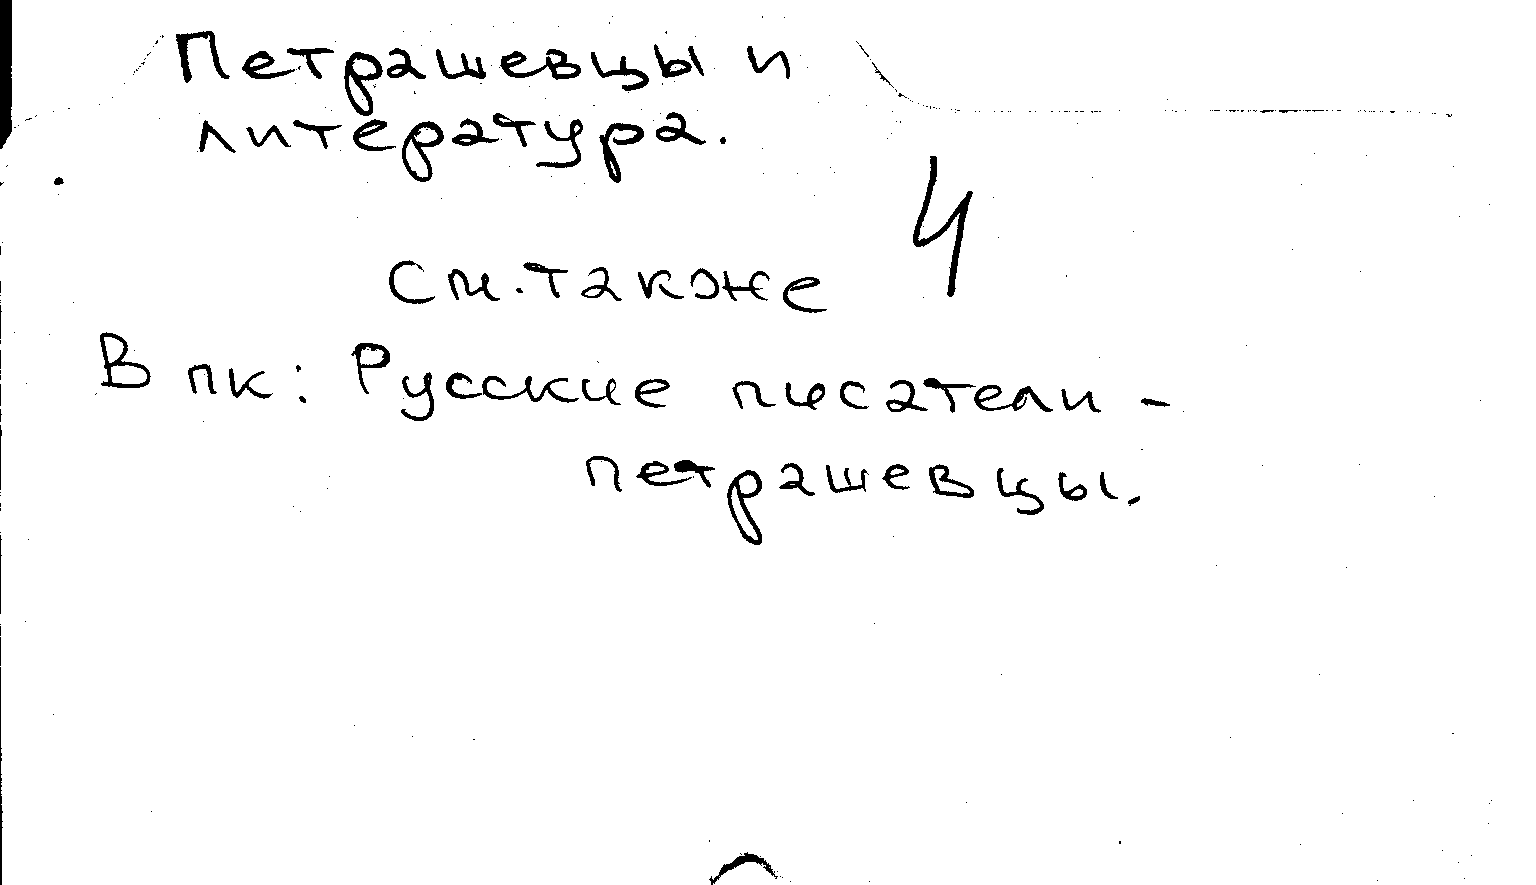 Петрашевцы и
литература.
4
См. также
В пк: Русские писатели -
петрашевцы.